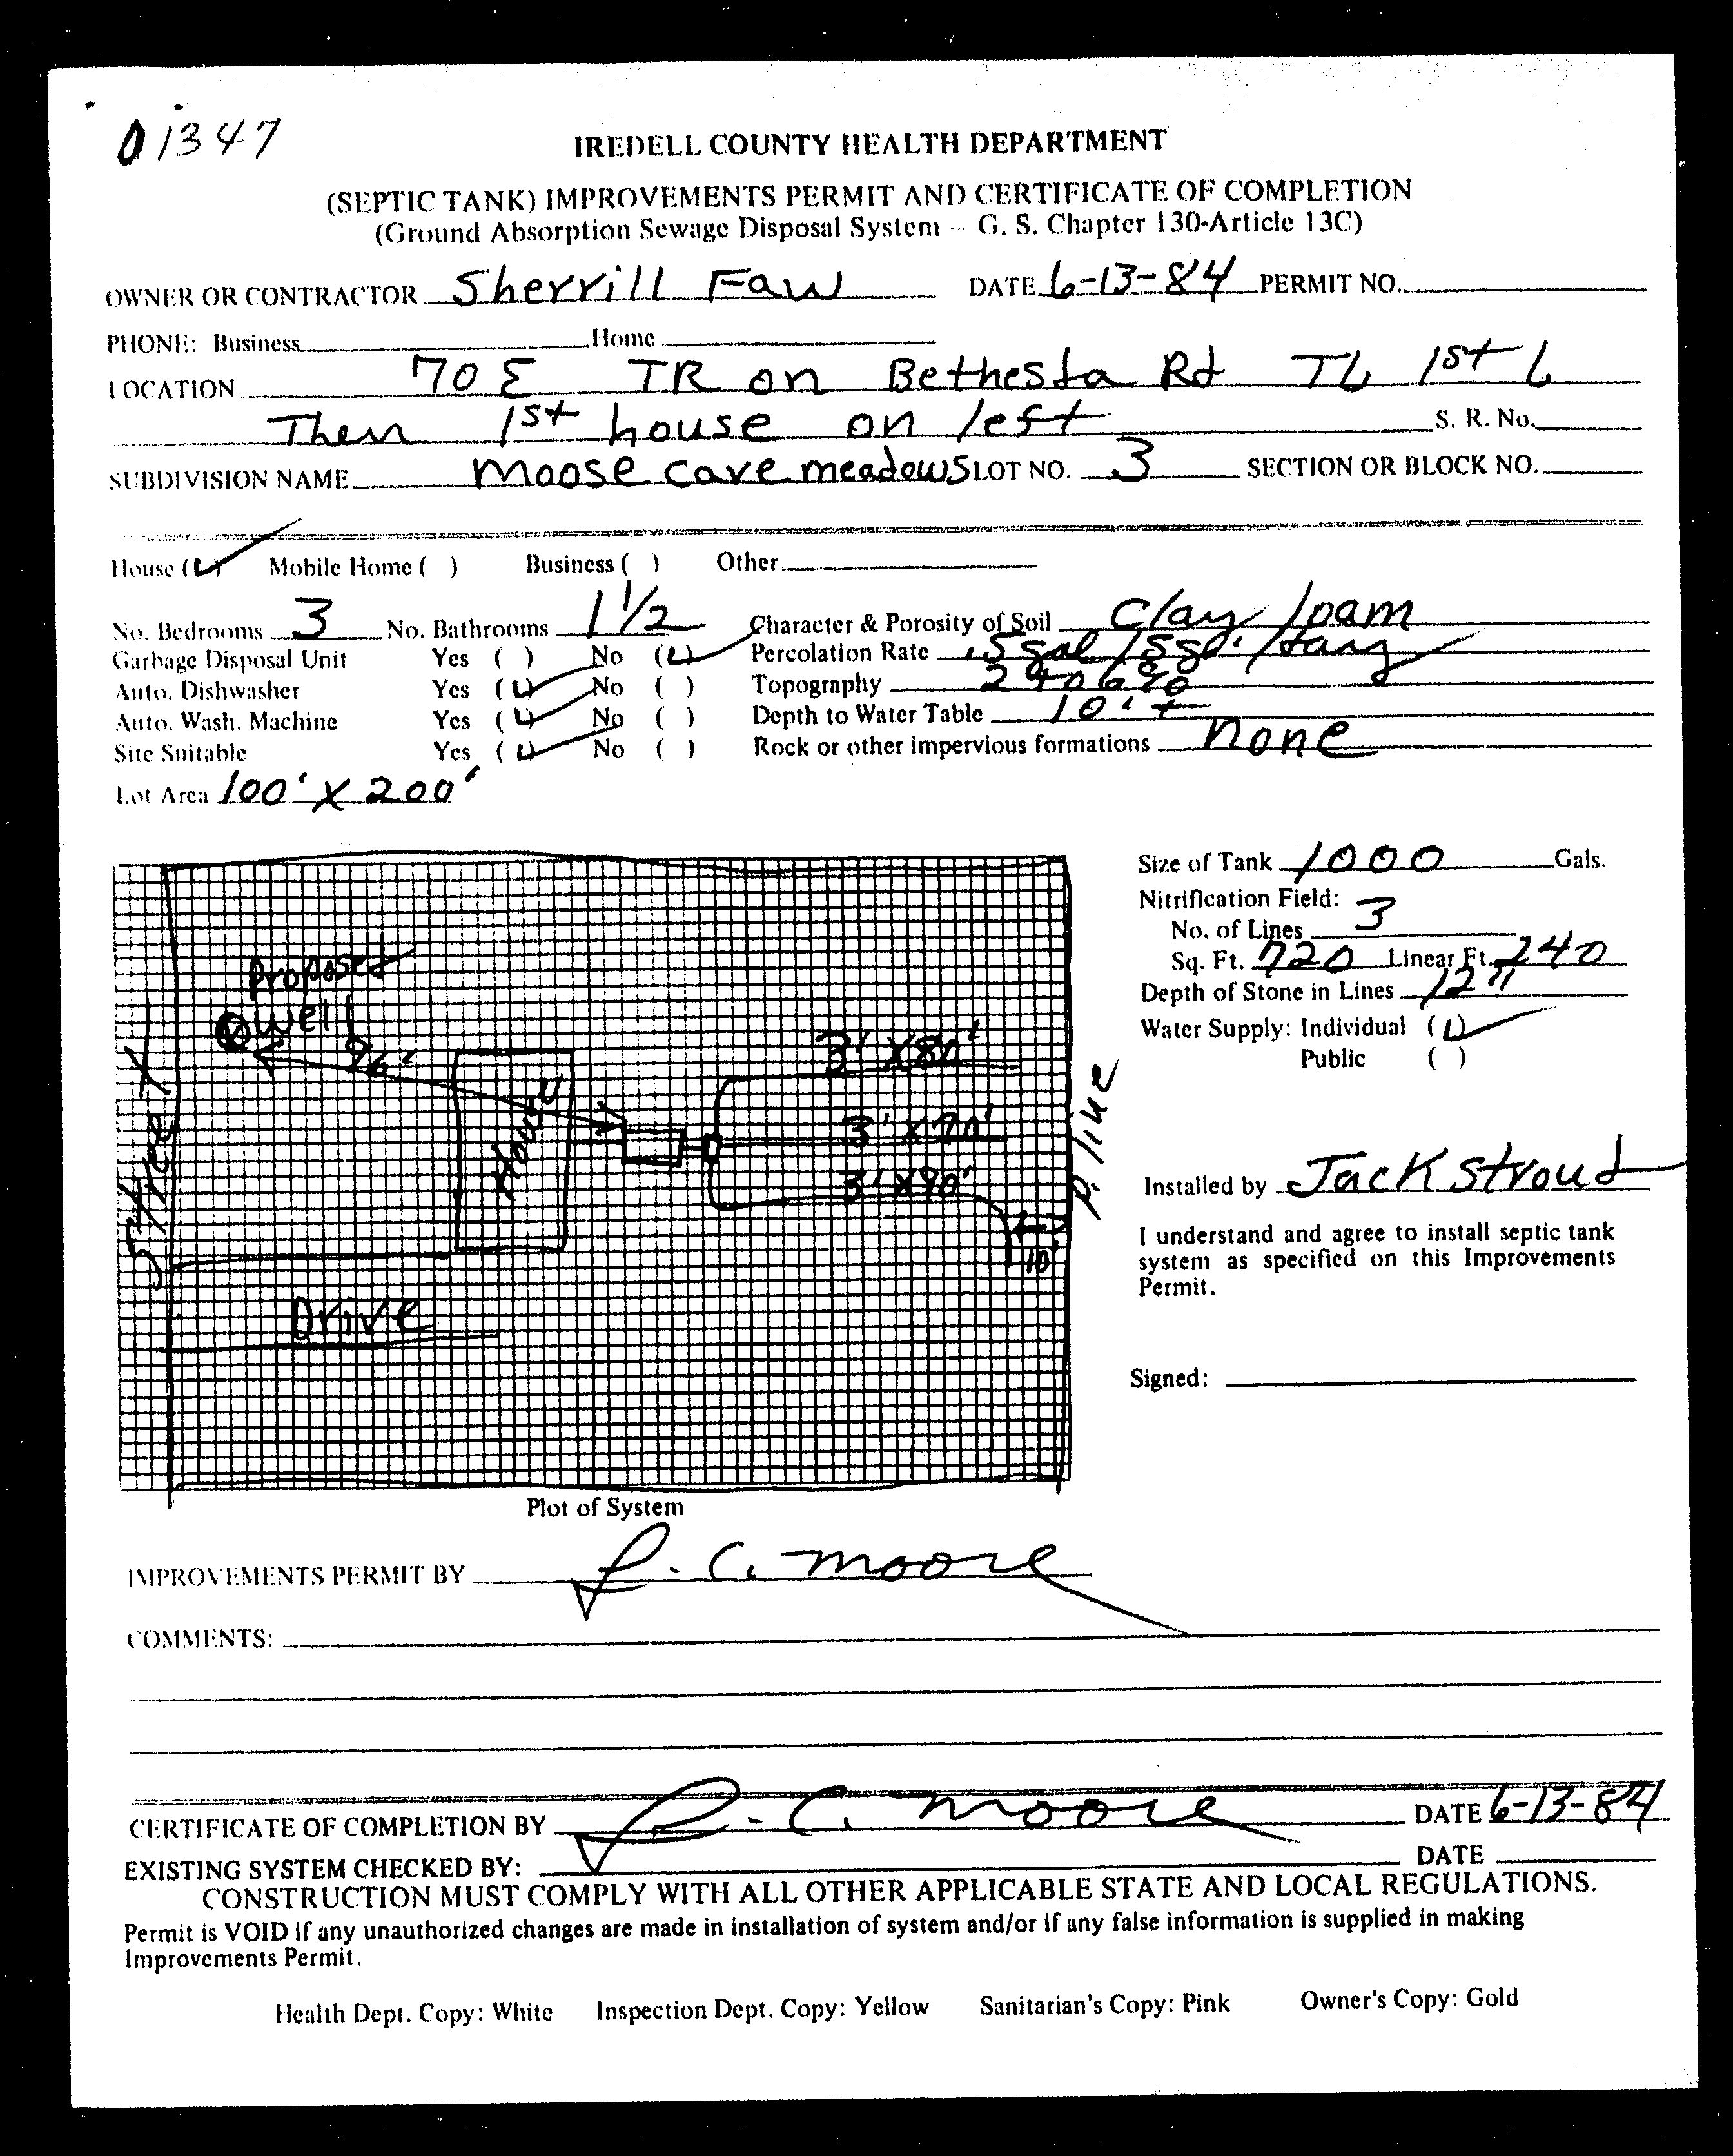 01347
IREDELL COUNTY HEALTH DEPARTMENT
(SEPTIC TANK) IMPROVEMENTS PERMIT AND CERTIFICATE OF COMPLETION
(Ground Absorption Sewage Disposal System -- G. S. Chapter 130-Article 13C)
OWNER OR CONTRACTOR Sherrill Faw DATE 6-13-84 PERMIT NO.
PHONE: Business Home
LOCATION 70 E TR on Bethesda Rd TL 1st L
Then 1st house on left S. R. No.
SUBDIVISION NAME Moose cave meadows LOT NO. 3 SECTION OR BLOCK NO.
House (✓) Mobile Home ( ) Business ( ) Other
No. Bedrooms 3 No. Bathrooms 1 1/2 Character & Porosity of Soil Clay loam
Garbage Disposal Unit Yes ( ) No (✓) Percolation Rate .5 gal / sq. /
Auto. Dishwasher Yes (✓) No ( ) Topography 2% 6%
Auto. Wash. Machine Yes (✓) No ( ) Depth to Water Table 10' +
Site Suitable Yes (✓) No ( ) Rock or other impervious formations none
Lot Area 100' X 200'
Size of Tank 1000 Gals.
Nitrification Field:
No. of Lines 3
Sq. Ft. 720 Linear Ft. 240
Depth of Stone in Lines 12"
Water Supply: Individual (✓)
Public ( )
Proposed
Well
76'
Street
House
3' X 80'
3' X 70'
3' X 90'
P. line
10'
Drive
Installed by Jack Stroud
I understand and agree to install septic tank
system as specified on this Improvements
Permit.
Signed:
Plot of System
IMPROVEMENTS PERMIT BY J. C. Moore
COMMENTS:
CERTIFICATE OF COMPLETION BY J. C. Moore DATE 6-13-84
EXISTING SYSTEM CHECKED BY: DATE
CONSTRUCTION MUST COMPLY WITH ALL OTHER APPLICABLE STATE AND LOCAL REGULATIONS.
Permit is VOID if any unauthorized changes are made in installation of system and/or if any false information is supplied in making
Improvements Permit.
Health Dept. Copy: White Inspection Dept. Copy: Yellow Sanitarian's Copy: Pink Owner's Copy: Gold